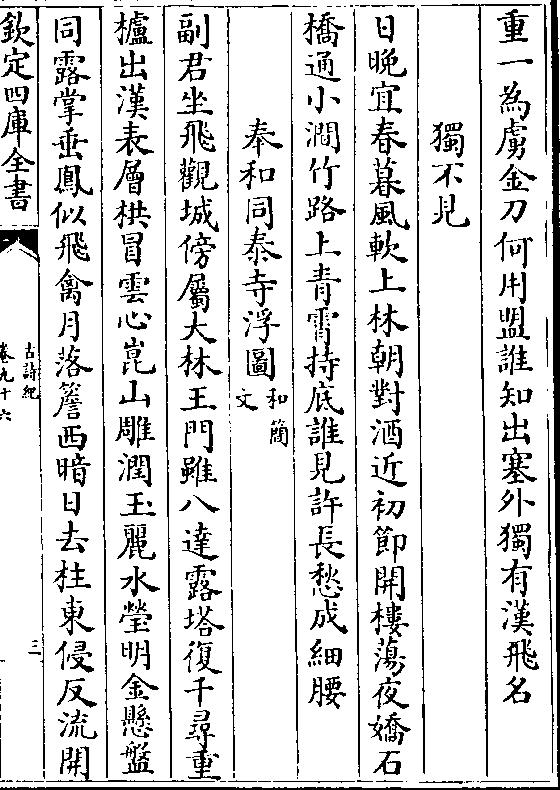 重一為虜金刀何用盟誰知出塞外獨有漢飛名
獨不見
日晚宜春暮風軟上林朝對酒近初節開樓蕩夜嬌石
橋通小澗竹路上青霄持底誰見許長愁成細腰
奉和同泰寺浮圖和簡文
副君坐飛觀城傍屬大林王門雖八達露塔復千尋重
櫨出漢表層栱冒雲心崑山雕潤玉麗水瑩明金懸盤
同露掌垂鳳似飛禽月落簷西暗日去柱東侵反流開
欽定四庫全書
古詩紀
卷九十六
三